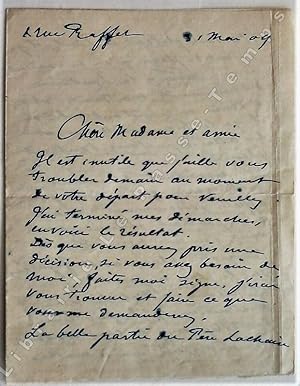 2 rue Raffet 31 Mai 09
Chère Madame et amie
Il est inutile que j'aille vous
troubler demain au moment
de votre départ pour Veuilley
J'ai terminé mes démarches,
en voici le résultat.
Dès que vous aurez pris une
décision, si vous avez besoin de
moi, faites moi signe, j'irai
vous trouver et faire ce que
vous me demanderez.
La belle partie du Père Lachaise